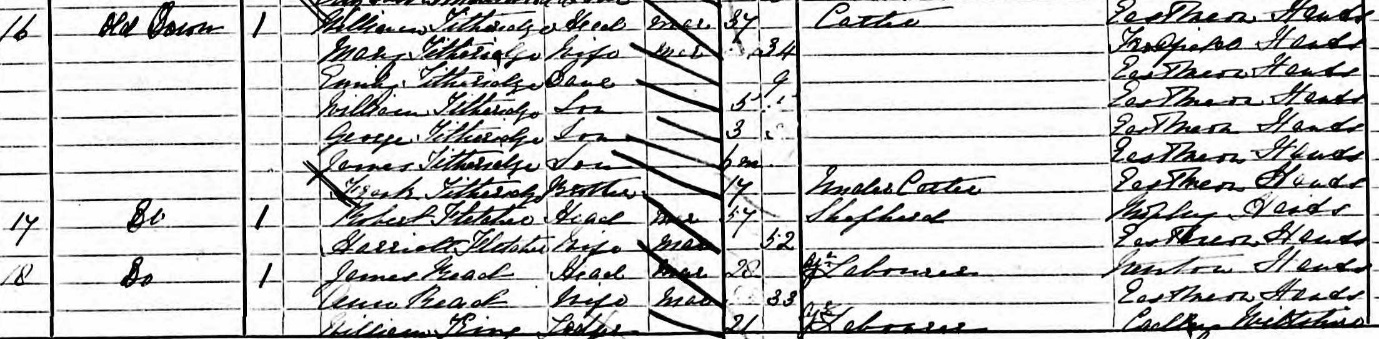 16 Old Down 1 William Titheridge Head Mar 37 Carter East Meon Hants
Mary Titheridge Wife Mar 34 Hants
Emily Titheridge Daur 9 East Meon Hants
William Titheridge Son 5 East Meon Hants
George Titheridge Son 3 East Meon Hants
James Titheridge Son 6 m East Meon Hants
Frank Titheridge Brother 17 Under Carter East Meon Hants
17 Do 1 Robert Fletcher Head Mar 57 Shepherd Hants
Harriett Fletcher Wife Mar 52 East Meon Hants
18 Do 1 James Read Head Mar 28 Labourer Hants
Read Wife Mar 33 East Meon Hants
William King Lodger 21 Labourer Wiltshire